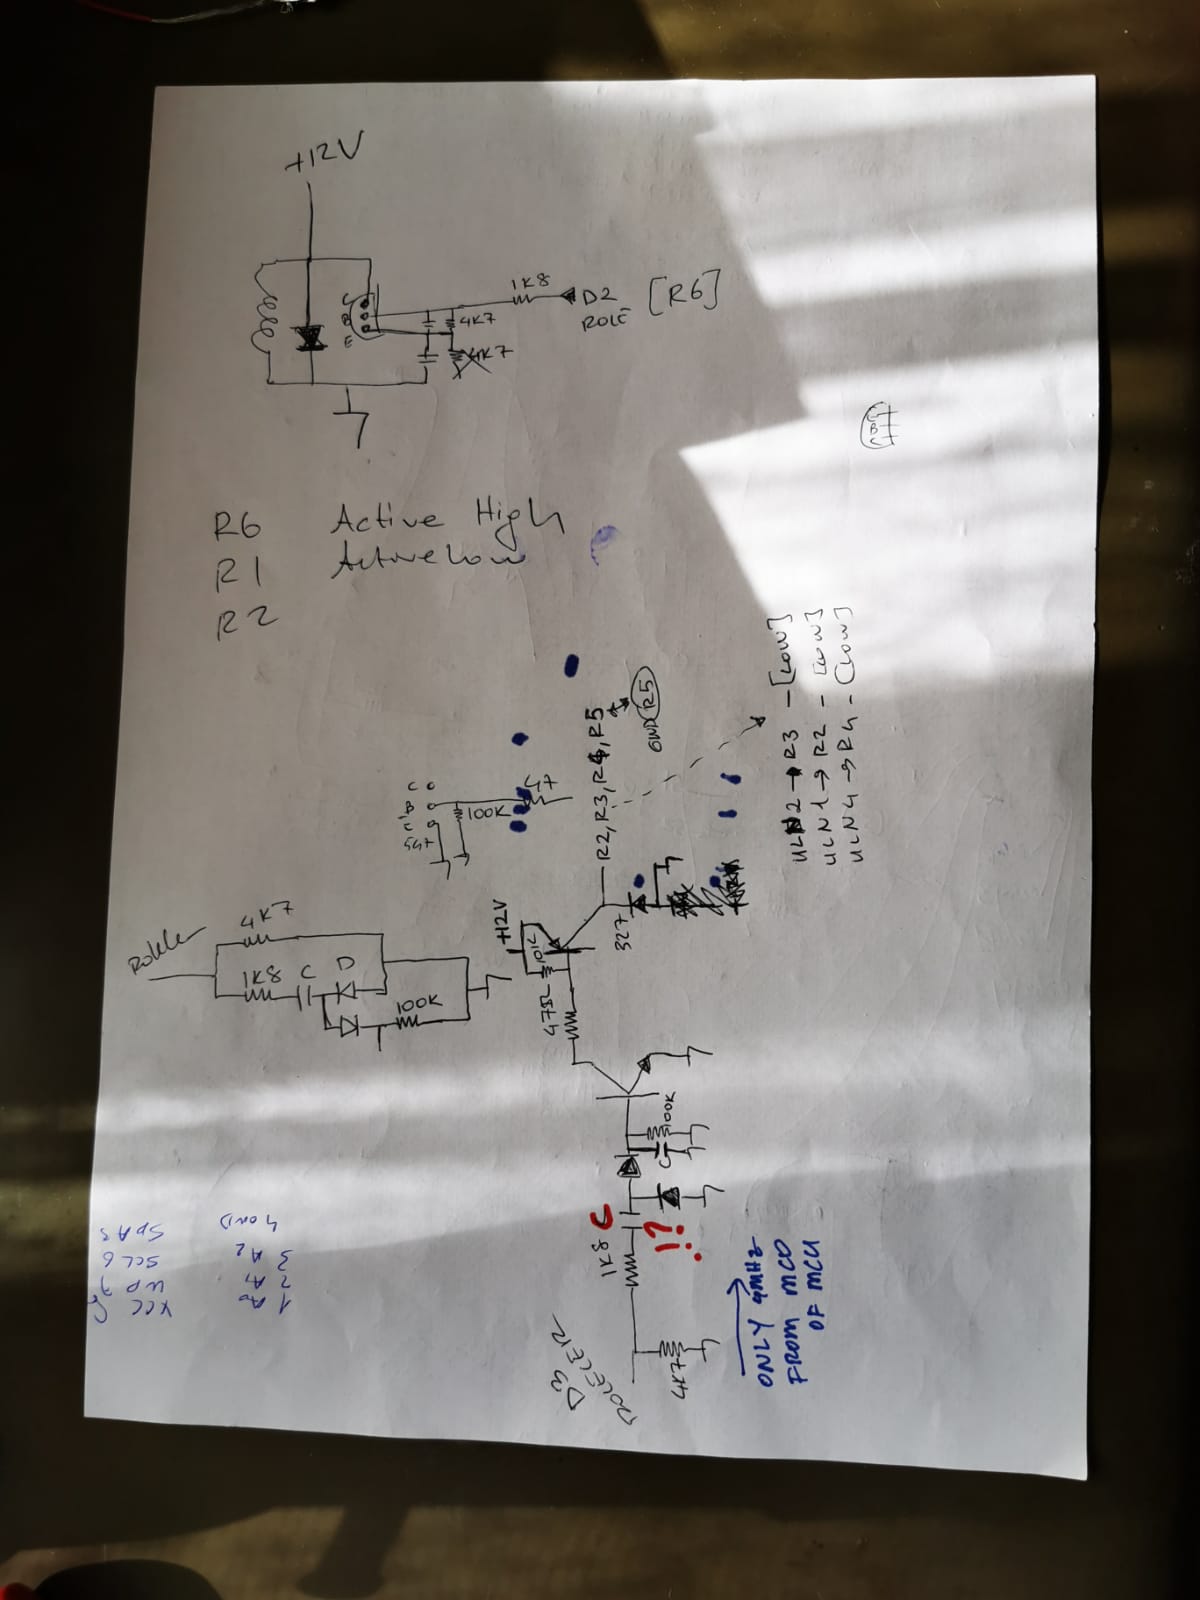 +12V
1K8
D2 [R6]
ROLE
4K7
4K7
E
R6 Active High
R1 Active Low
R2
C
B
100K
47
R2, R3, R4, R5
GND R5
ULN2 → R3 - [LOW]
ULN1 → R2 - [LOW]
ULN4 → R4 - [LOW]
4K7
1K8 C D
100K
+12V
10K
47
327
100K
C
1K8 C
!?
D3
ROLELER
4K7
ONLY 4MHz
FROM MCO
OF MCU
1 A0 VCC
2 A1 WP 7
3 A2 SCL 6
4 GND SDA 5